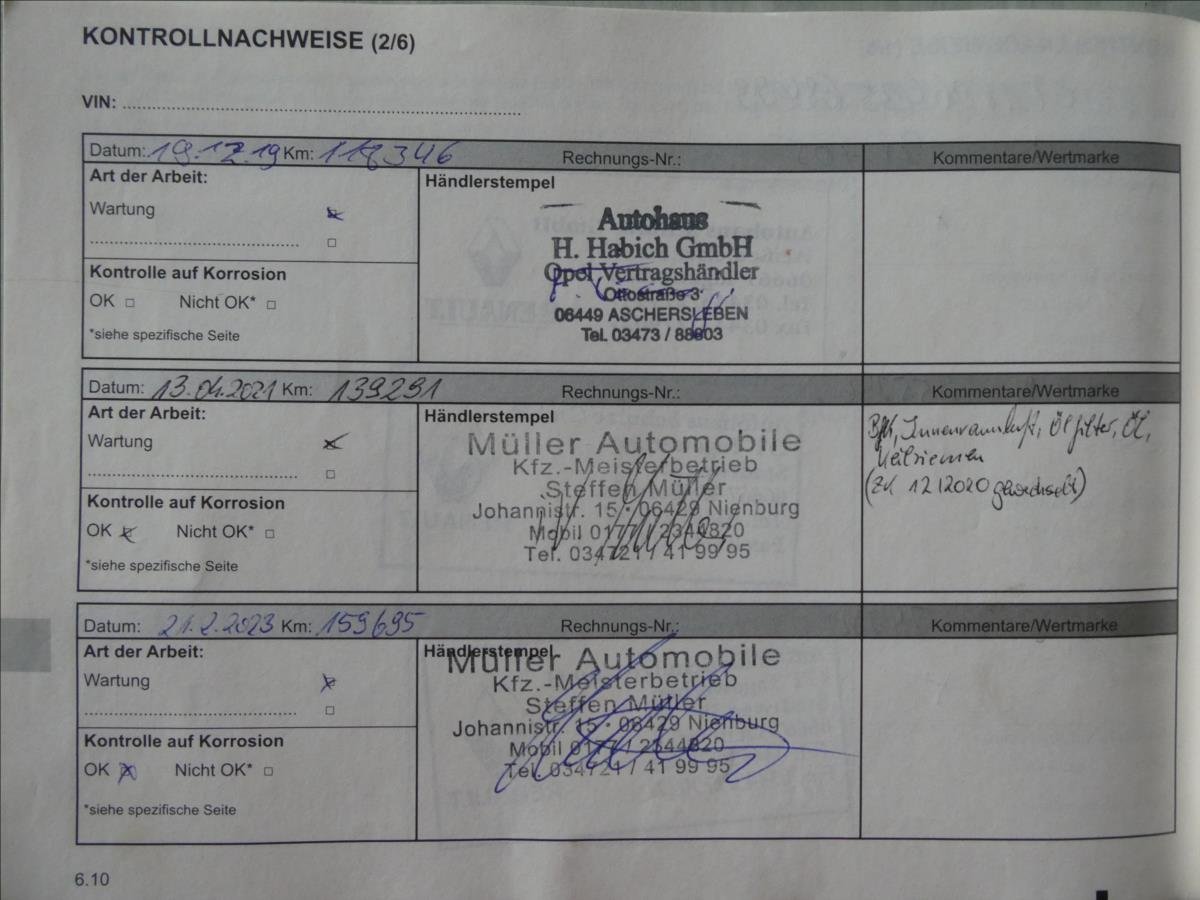 KONTROLLNACHWEISE (2/6)
VIN:
Datum: 19.12.19 Km: 118346 Rechnungs-Nr.: Kommentare/Wertmarke
Art der Arbeit:
Händlerstempel
Wartung
Autohaus
H. Habich GmbH
Opel Vertragshändler
Ottostraße 3
06449 ASCHERSLEBEN
Tel. 03473 / 88803
Kontrolle auf Korrosion
OK Nicht OK*
*siehe spezifische Seite
Datum: 13.04.2021 Km: 139291 Rechnungs-Nr.: Kommentare/Wertmarke
Art der Arbeit:
Händlerstempel
Wartung
Müller Automobile
Kfz.-Meisterbetrieb
Steffen Müller
Johannistr. 15 · 06429 Nienburg
Mobil 0177 / 2344820
Tel. 034721 / 41 99 95
Innenraumluft, Ölfilter, Öl,
Keilriemen
(ZK 12/2020 gewechselt)
Kontrolle auf Korrosion
OK Nicht OK*
*siehe spezifische Seite
Datum: 21.2.2023 Km: 159695 Rechnungs-Nr.: Kommentare/Wertmarke
Art der Arbeit:
Händlerstempel
Wartung
Müller Automobile
Kfz.-Meisterbetrieb
Steffen Müller
Johannistr. 15 · 06429 Nienburg
Mobil 0177 / 2344820
Tel. 034721 / 41 99 95
Kontrolle auf Korrosion
OK Nicht OK*
*siehe spezifische Seite
6.10